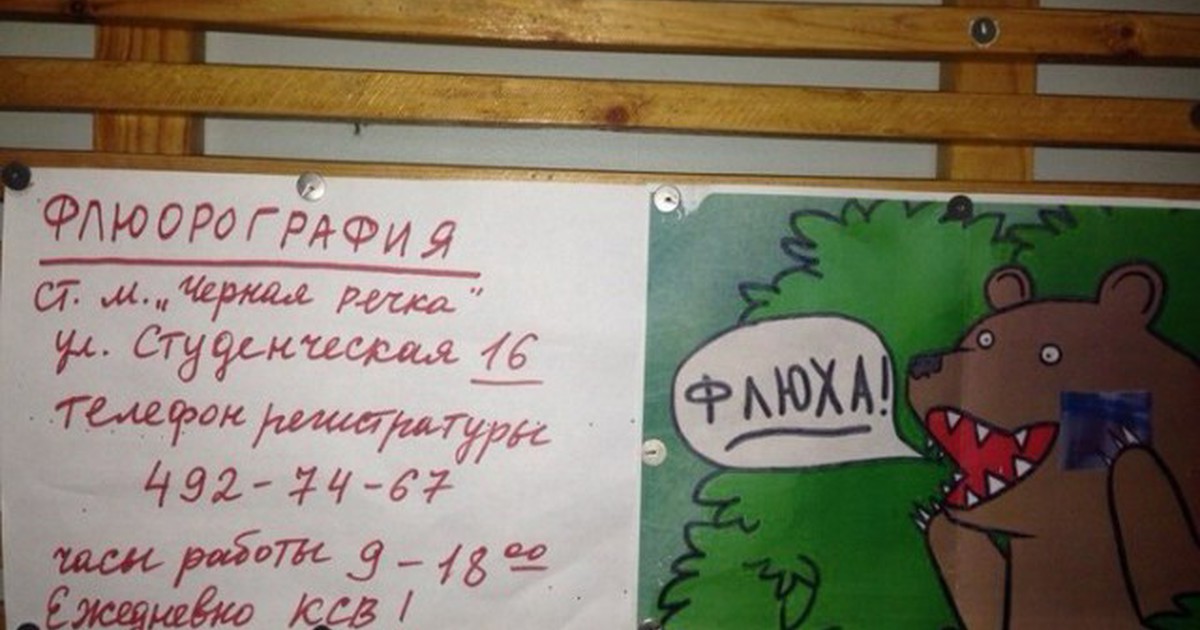 ФЛЮОРОГРАФИЯ
ст. м. „Черная речка"
ул. Студенческая 16
телефон регистратуры
492-74-67
часы работы 9-18 00
Ежедневно КСВ!
ФЛЮХА!